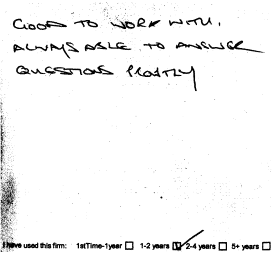 GOOD TO WORK WITH.
ALWAYS ABLE TO ANSWER
QUESTIONS
I have used this firm: 1stTime-1year ☐ 1-2 years ☑ 2-4 years ☐ 5+ years ☐